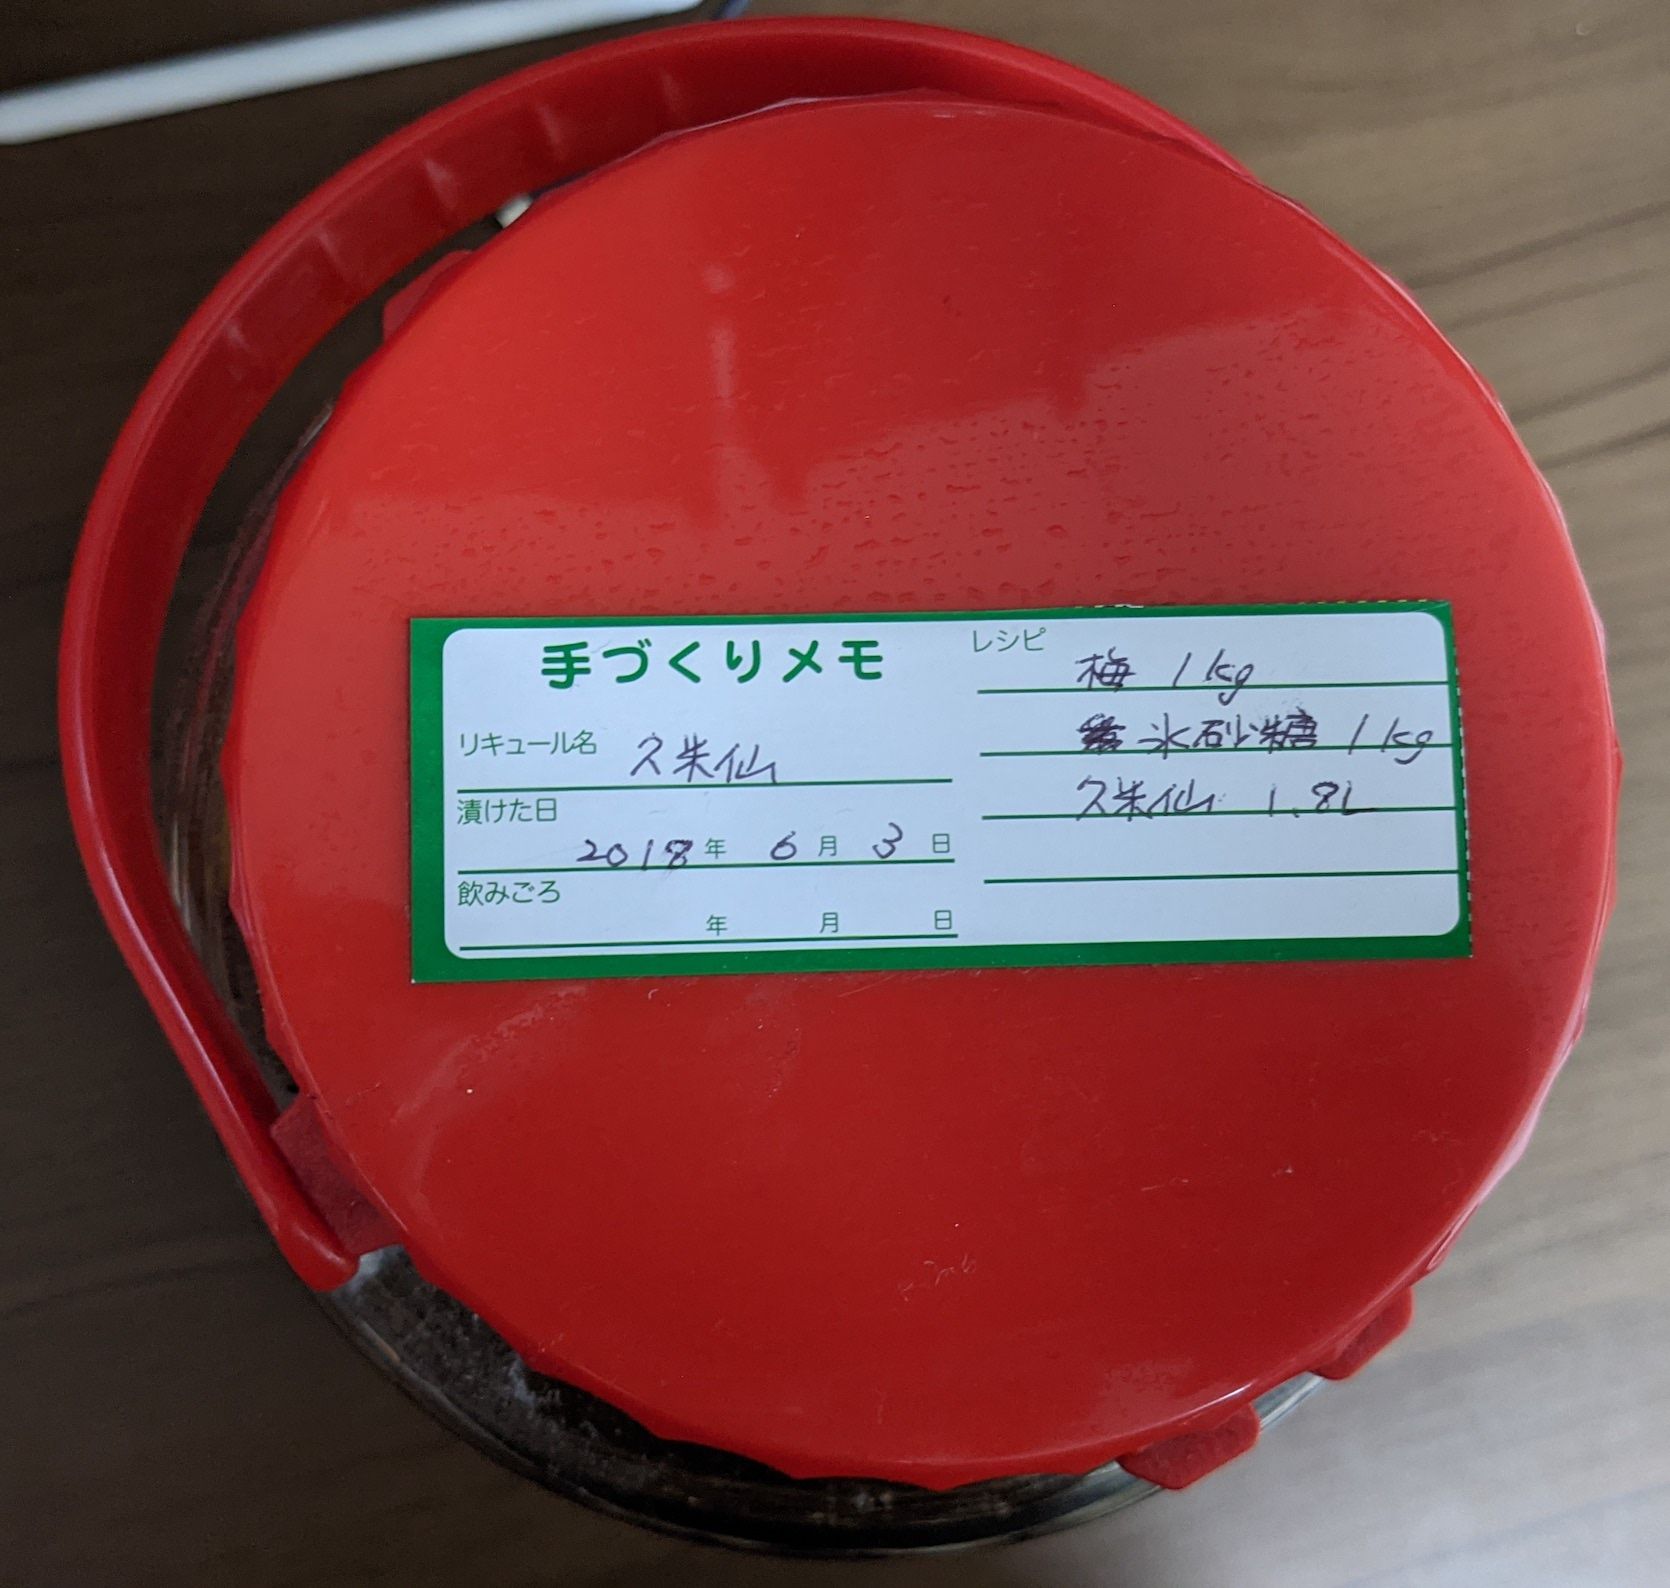 手づくりメモ
リキュール名 久朱仙
漬けた日
2018年 6月 3日
飲みごろ
年 月 日
レシピ
梅 1kg
氷砂糖 1kg
久朱仙 1.8L